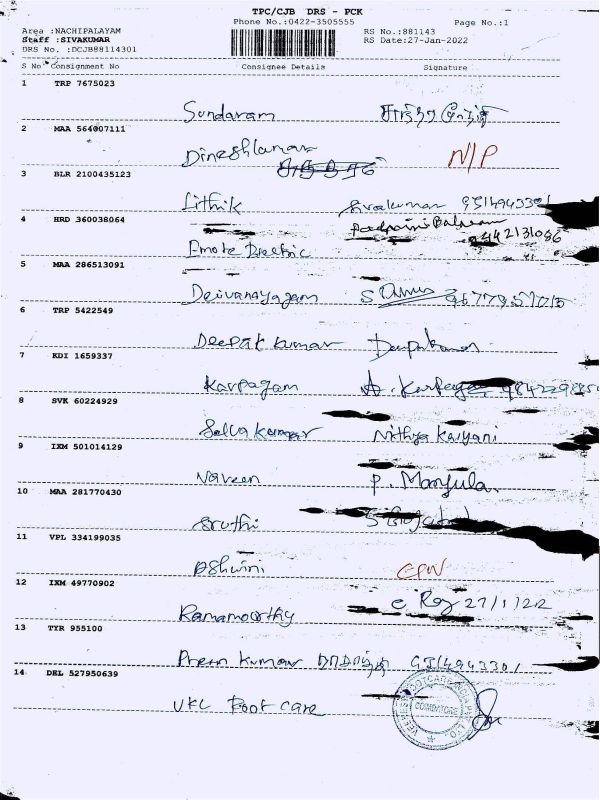 TPC/CJB DRS - PCK
Phone No.:0422-3505555 Page No.:1
Area :NACHIPALAYAM RS No.:881143
Staff :SIVAKUMAR RS Date:27-Jan-2022
DRS No. :DCJB88114301
S No Consignment No Consignee Details Signature
1 TRP 7675023
Sundaram
2 MAA 564007111
Dineshkumar N/P
3 BLR 2100435123
Lithik Sivakumar 9514943301
4 HRD 360038064
9442131086
Emote Electric
5 MAA 286513091
Deivanayagam S
6 TRP 5422549
Deepak kumar Deepakumar
7 KDI 1659337
Karpagam A. Karpagam
8 SVK 60224929
Selva kumar Nithya Kalyani
9 IXM 501014129
Naveen P. Manjula
10 MAA 281770430
Sruthi
11 VPL 334199035
Ashwini
12 IXM 49770902
Ramamoorthy 27/1/22
13 TYR 955100
Prem kumar 9514943301
14 DEL 527950639
VKC Foot care
COIMBATORE